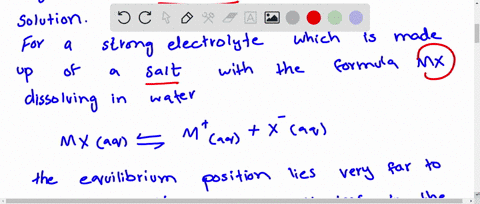 Solution.
For a strong electrolyte which is made
up of a salt with the formula MX
dissolving in water
MX (aq) ⇌ M⁺ (aq) + X⁻ (aq)
the equilibrium position lies very far to
the